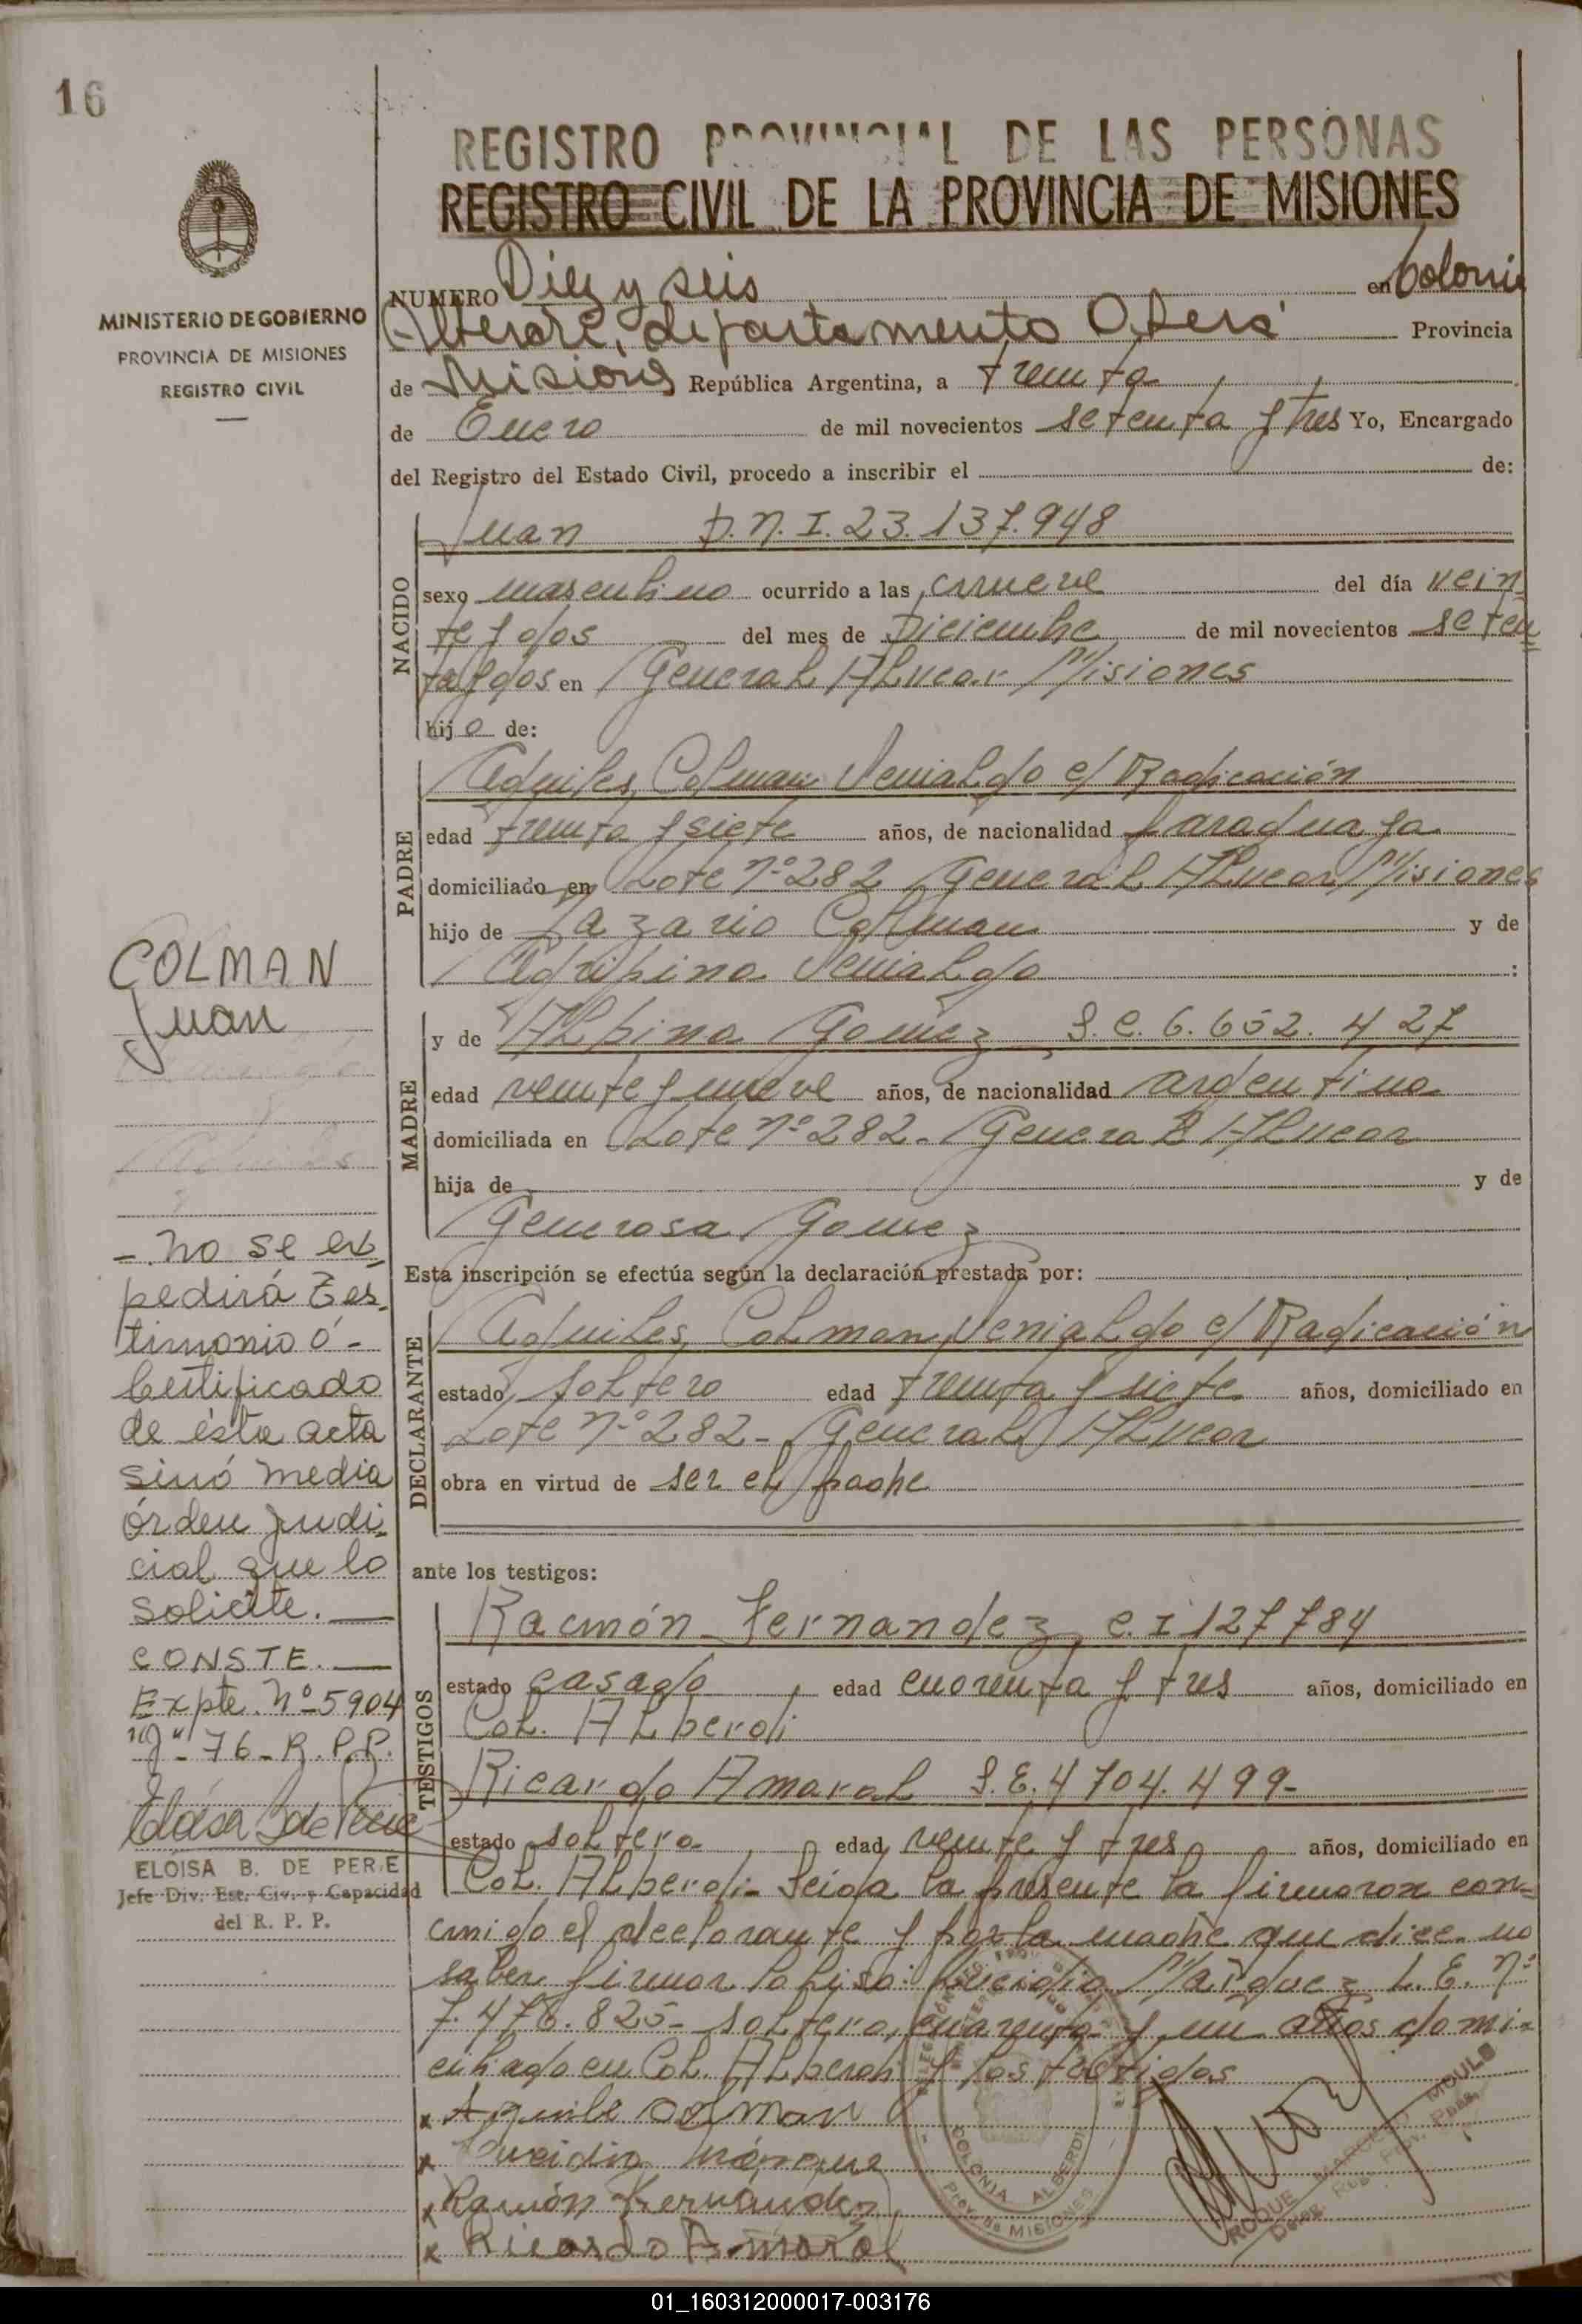 16
REGISTRO PROVINCIAL DE LAS PERSONAS
REGISTRO CIVIL DE LA PROVINCIA DE MISIONES
MINISTERIO DE GOBIERNO
PROVINCIA DE MISIONES
REGISTRO CIVIL
NUMERO Diez y seis en Colonia
Alberdi, departamento Oberá Provincia
de Misiones República Argentina, a treinta
de Enero de mil novecientos setenta y tres Yo, Encargado
del Registro del Estado Civil, procedo a inscribir el de:
NACIDO
Juan D.N.I. 23.137.948
sexo masculino ocurrido a las nueve del día vein
te y dos del mes de Diciembre de mil novecientos seten
ta y dos en General Alvear Misiones
hijo de:
PADRE
Aquiles Colman Venialgo c/ Radicación
edad treinta y siete años, de nacionalidad paraguaya
domiciliado en Lote Nº 282 General Alvear Misiones
hijo de Lazario Colman y de
Agripina Venialgo :
MADRE
y de Albina Gomez L.C. 6.652.427
edad veinte y nueve años, de nacionalidad argentina
domiciliada en Lote Nº 282- General Alvear
hija de y de
Generosa Gomez
Esta inscripción se efectúa según la declaración prestada por:
DECLARANTE
Aquiles Colman Venialgo c/ Radicación
estado soltero edad treinta y siete años, domiciliado en
Lote Nº 282- General Alvear
obra en virtud de ser el padre
ante los testigos:
TESTIGOS
Ramón Fernandez C.I 127784
estado casado edad cuarenta y tres años, domiciliado en
Col. Alberdi
Ricardo Amaral L.E. 4704.499-
estado soltero edad veinte y tres años, domiciliado en
Col. Alberdi- Leida la presente la firmaron con=
migo el declarante y por la madre que dice no
saber firmar lo hiso: Lucidio Márquez L.E. Nº
7.476.825- soltero, cuarenta y un años domi-
ciliado en Col. Alberdi y los testigos
x Aquile Colman
x Lucidio Márque
x Ramón Fernández
x Ricardo Amaral
COLMAN
Juan
- No se ex
pedirá Tes
timonio ó -
Certificado
de ésta acta
sinó media
órden judi
cial que lo
solicite.
CONSTE.
Expte. Nº 5904
"J" - 76 - R.P.P.
ELOISA B. DE PERIE
Jefe Div. Est. Civ. y Capacidad
del R. P. P.
COLONIA ALBERDI
Prov. de MISIONES
ROQUE MARCELO MOULO
Deleg. Reg. Prov. Pers.
01_160312000017-003176